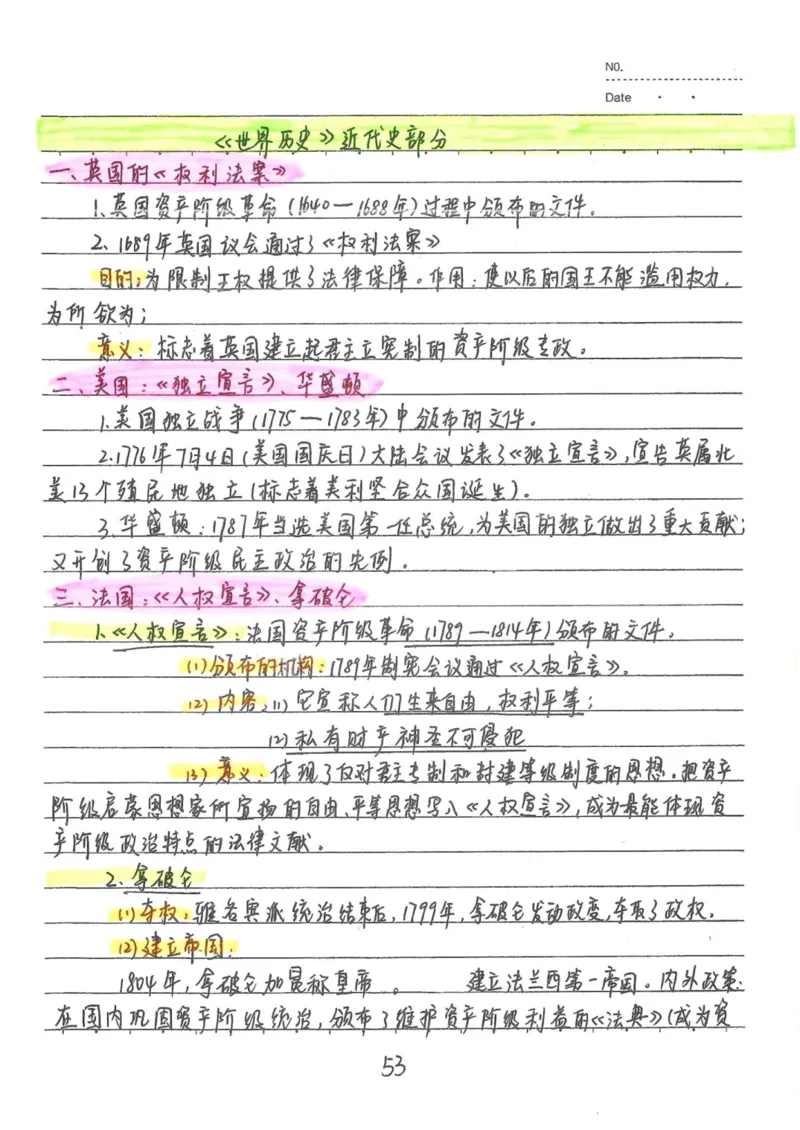 NO.
Date
《世界历史》近代史部分
一、英国的《权利法案》
1.英国资产阶级革命(1640—1688年)过程中颁布的文件。
2.1689年英国议会通过了《权利法案》
目的:为限制王权提供了法律保障。作用:使以后的国王不能滥用权力,
为所欲为;
意义:标志着英国建立起君主立宪制的资产阶级专政。
二、美国:《独立宣言》、华盛顿
1.美国独立战争(1775—1783年)中颁布的文件。
2.1776年7月4日(美国国庆日)大陆会议发表了《独立宣言》,宣告英属北
美13个殖民地独立(标志着美利坚合众国诞生)。
3.华盛顿:1787年当选美国第一任总统,为美国的独立做出了重大贡献;
又开创了资产阶级民主政治的先例.
三、法国:《人权宣言》、拿破仑
1.《人权宣言》:法国资产阶级革命(1789—1814年)颁布的文件。
(1)颁布的机构:1789年制宪会议通过《人权宣言》。
(2)内容:(1)它宣称人们生来自由,权利平等;
(2)私有财产神圣不可侵犯
(3)意义:体现了反对君主专制和封建等级制度的思想。把资产
阶级启蒙思想家所宣扬的自由、平等思想写入《人权宣言》,成为最能体现资
产阶级政治特点的法律文献。
2.拿破仑
(1)夺权:雅各宾派统治结束后,1799年,拿破仑发动政变,夺取了政权.
(2)建立帝国:
1804年,拿破仑加冕称皇帝。 建立法兰西第一帝国。内外政策:
在国内巩固资产阶级统治,颁布了维护资产阶级利益的《法典》(成为资
53